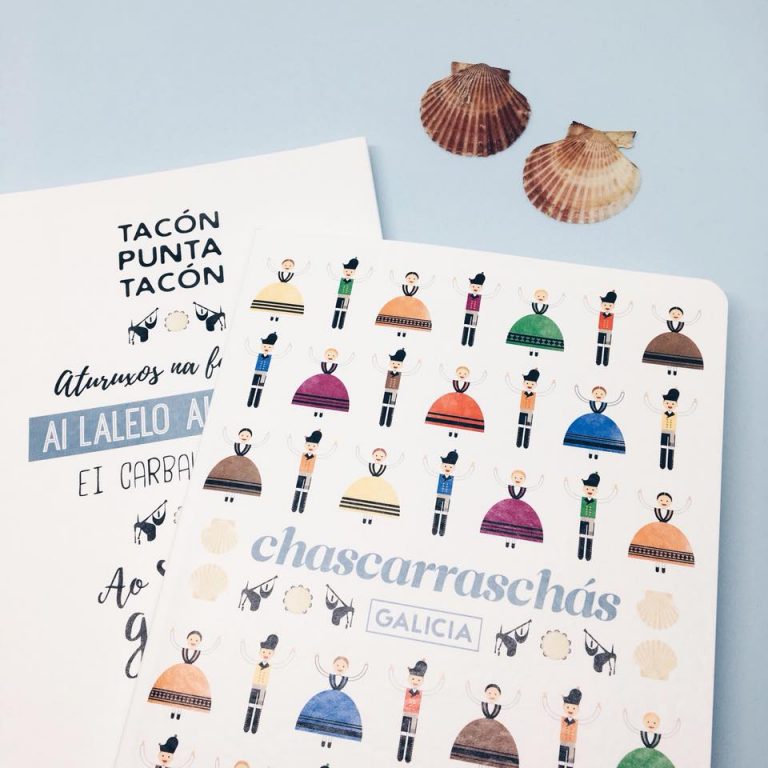 TACÓN
PUNTA
TACÓN
Aturuxos na
AI LALELO
EI
Ao
chascarraschás
GALICIA